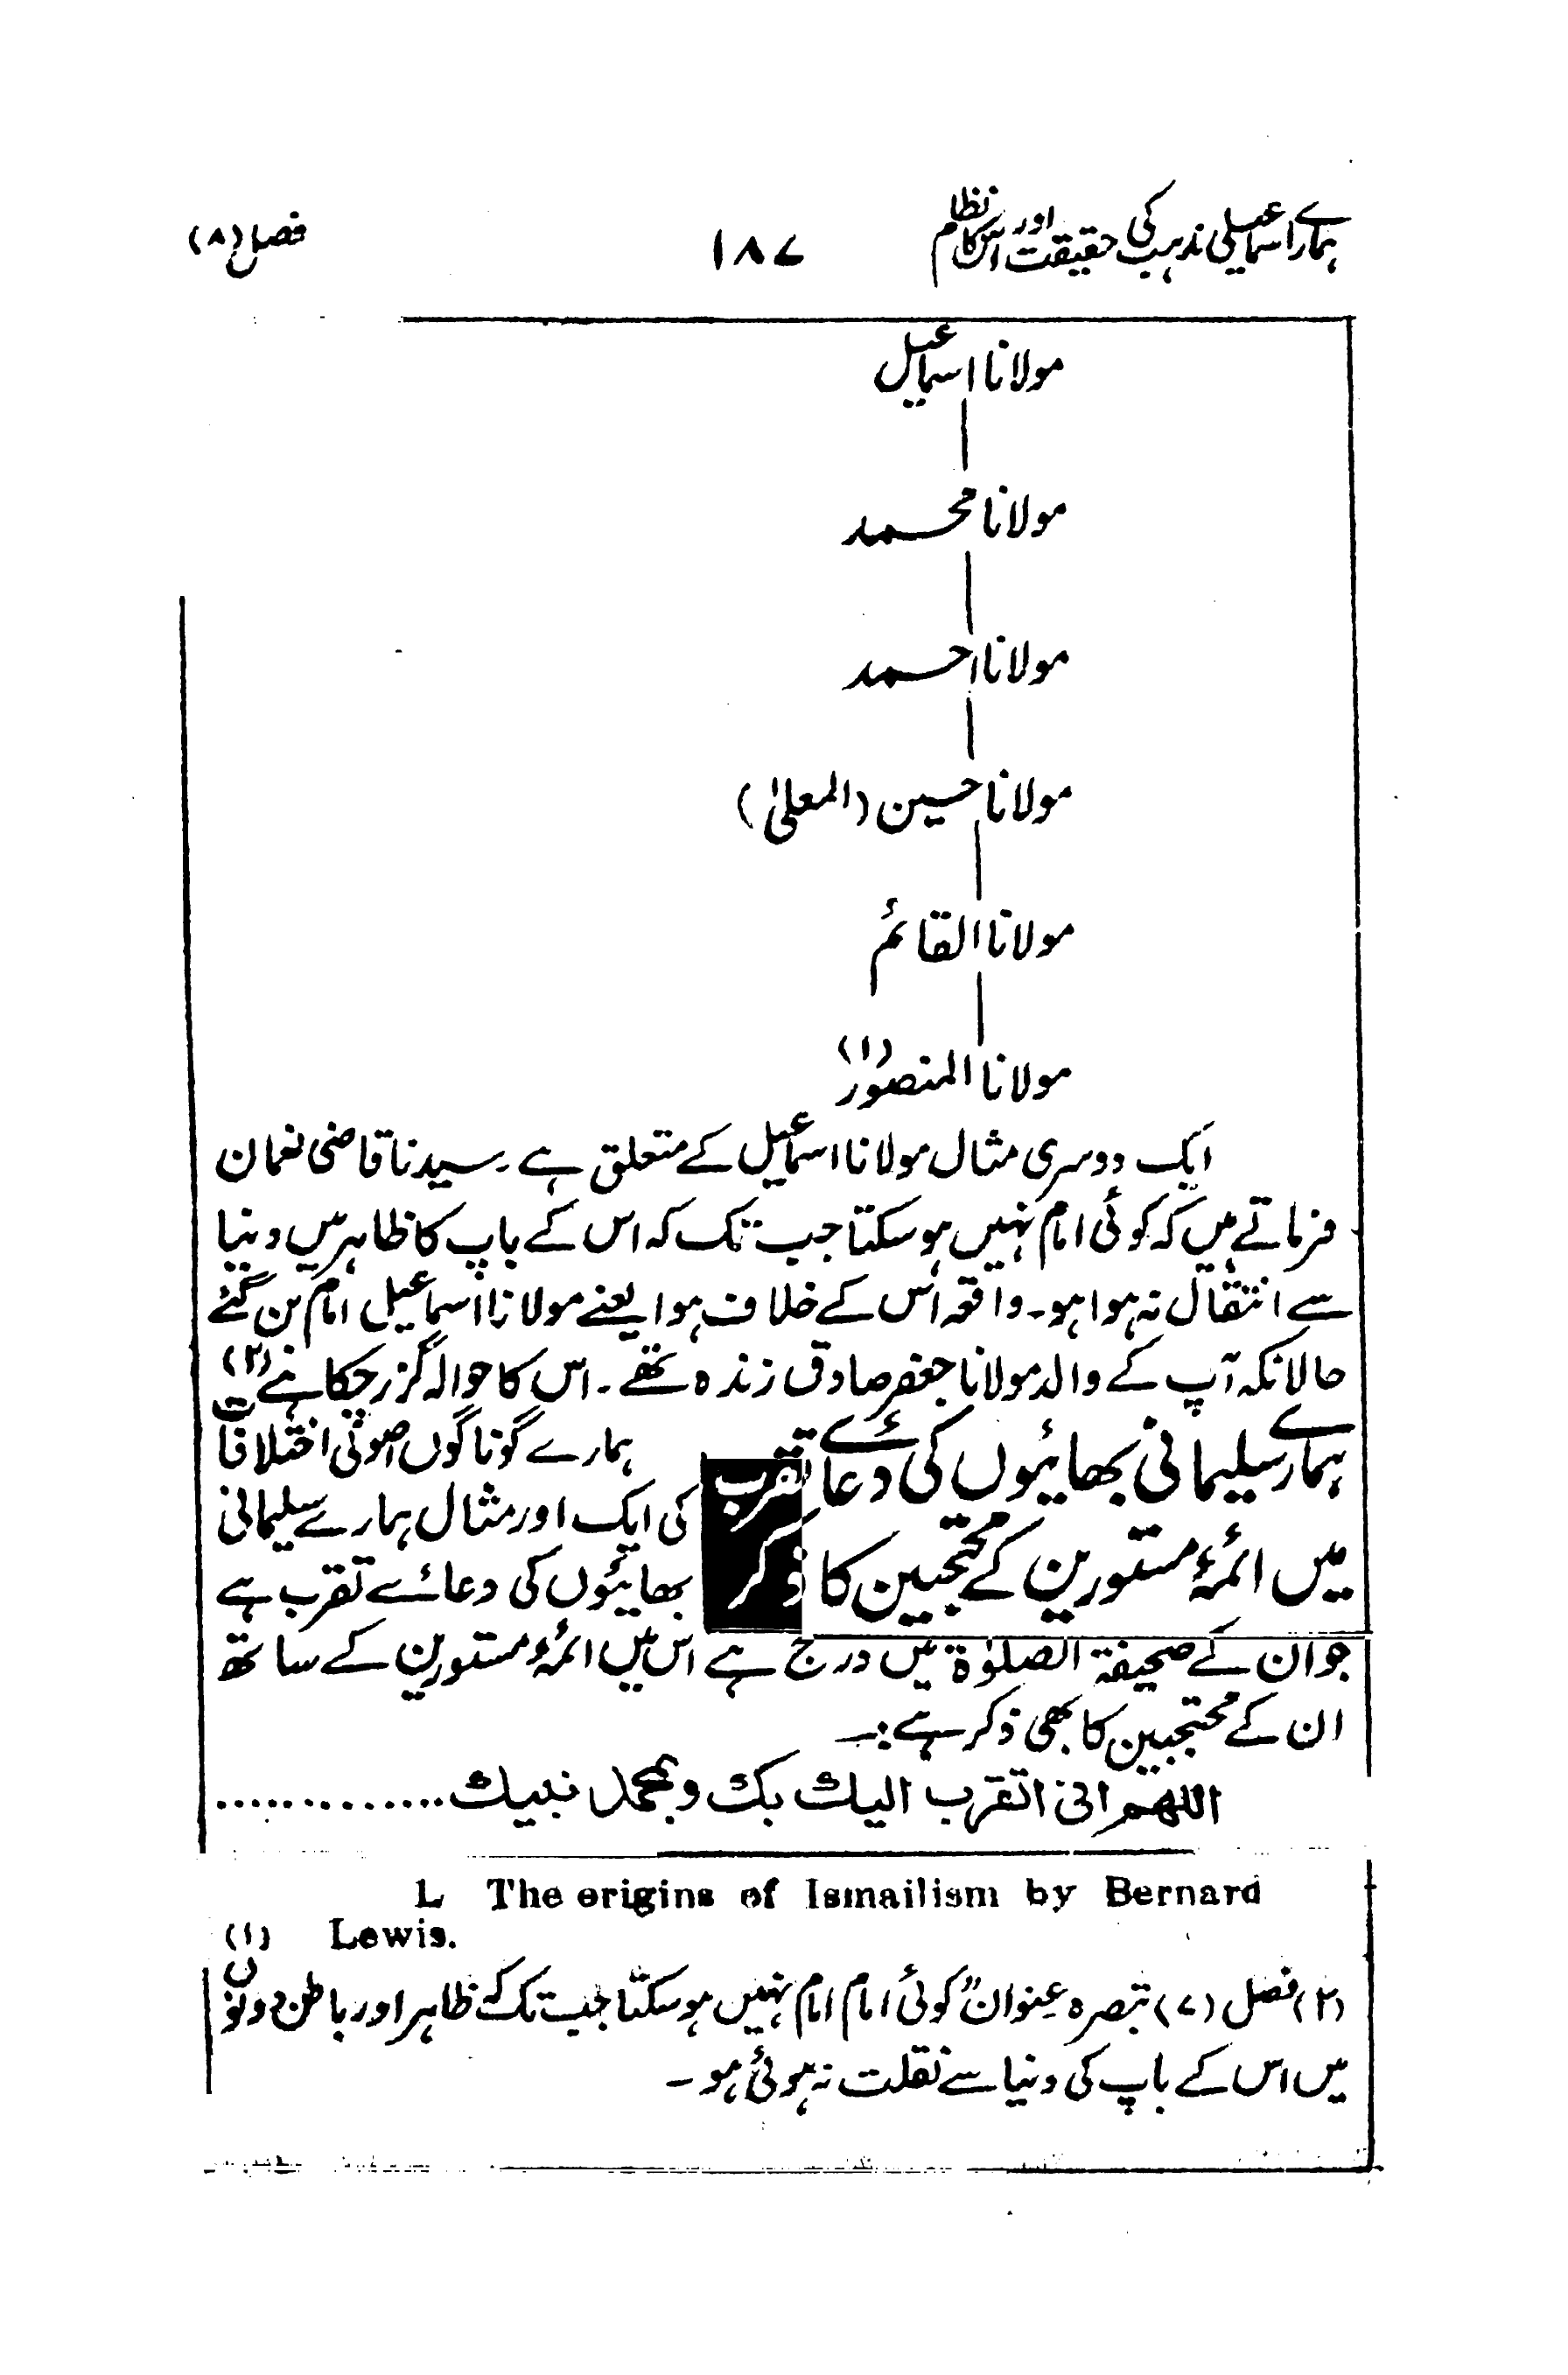 ہمارے اسماعیلی مذہب کی حقیقت اور اس کا نظام ۱۸۷ فصل (۸)
مولانا اسماعیل
مولانا محمد
مولانا احمد
مولانا حسین (المعلیٰ)
مولانا القائم
مولانا المنصور (۱)
ایک دوسری مثال مولانا اسماعیل کے متعلق ہے ۔ سیدنا قاضی نعمان
فرماتے ہیں کہ کوئی امام نہیں ہو سکتا جب تک کہ اس کے باپ کا ظاہر میں دنیا
سے انتقال نہ ہوا ہو۔ واقعہ اس کے خلاف ہوا یعنے مولانا اسماعیل امام بن گئے
حالانکہ آپ کے والد مولانا جعفر صادق زندہ تھے ۔ اس کا حوالہ گزر چکا ہے (۲)
ہمارے سلیمانی بھائیوں کی دعائے تقرب
میں ائمۂ مستورین کے محتجبین کا ذکر
ہمارے گوناگوں اصولی اختلافات
کی ایک اور مثال ہمارے سلیمانی
بھائیوں کی دعائے تقرب ہے
جو ان کے صحیفۃ الصلوٰۃ میں درج ہے اس میں ائمۂ مستورین کے ساتھ
ان کے محتجبین کا بھی ذکر ہے :۔
اللهم انی اتقرب الیك بك وبمحمد نبیك ..............
1. The origins of Ismailism by Bernard
(۱) Lewis.
(۲) فصل (۷) تبصرہ عنوان "کوئی امام امام نہیں ہو سکتا جب تک کہ ظاہر اور باطن دونوں
میں اس کے باپ کی دنیا سے نقلت نہ ہوئی ہو ۔